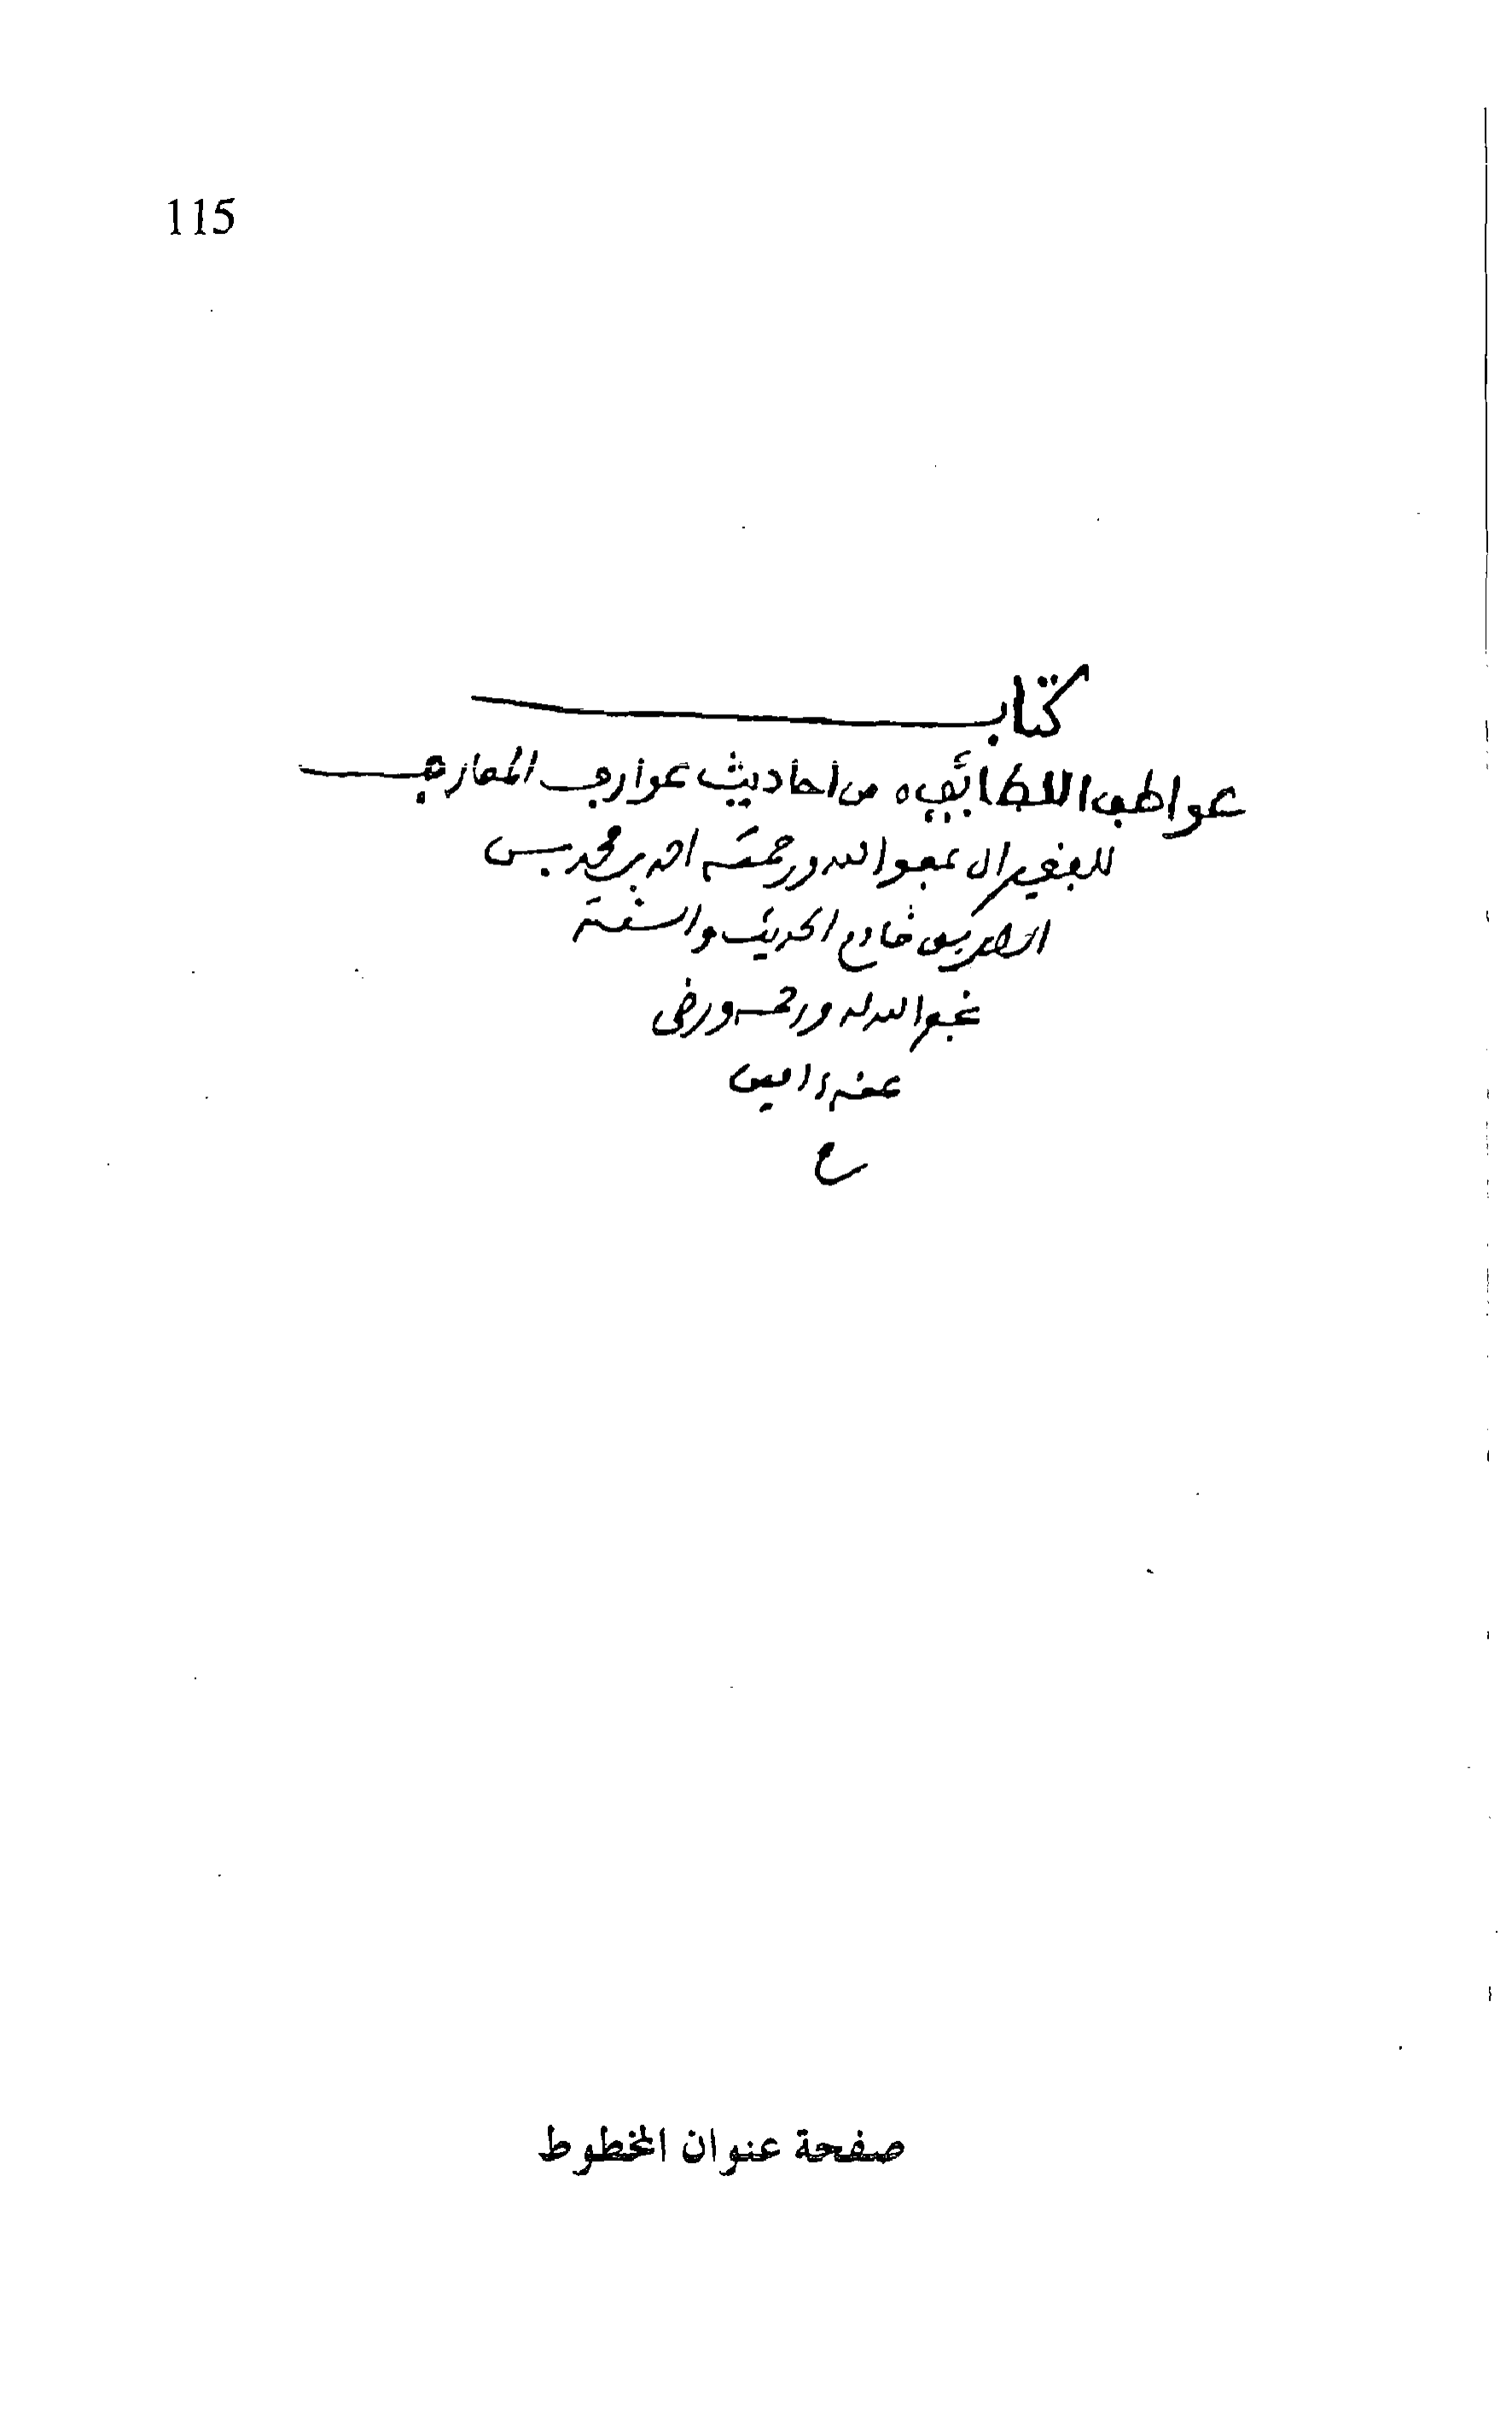 115
كتاب
عواطف اللطائف من احاديث عوارف المعارف
للفقير الى عفو الله ورحمته احمد بن محمد بن
الصديق خادم الحديث والسنة
عفا الله له ورحمه ورضي
عنه ءامين
صفحة عنوان المخطوط